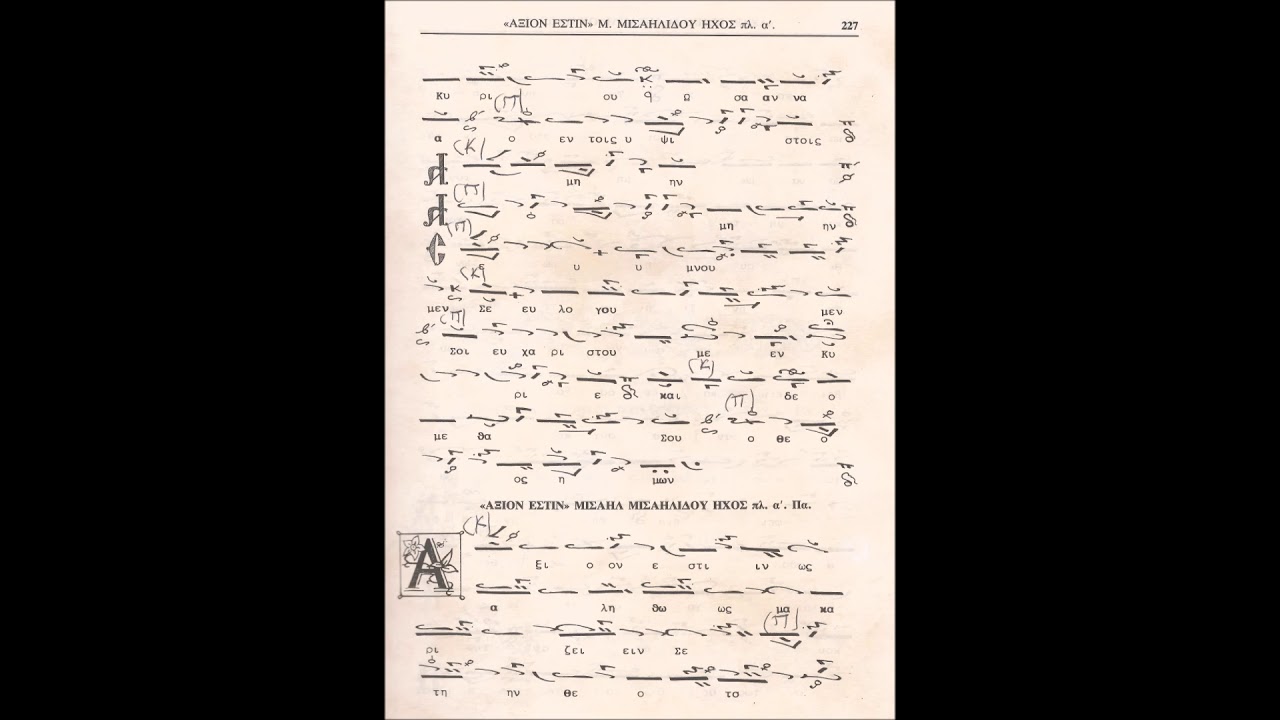 «ΑΞΙΟΝ ΕΣΤΙΝ» Μ. ΜΙΣΑΗΛΙΔΟΥ ΗΧΟΣ πλ. α΄. 227
κυ ρι ου Ω σα αν να
(Π)
α ο εν τοις υ ψι στοις
(Κ)
Α μη ην
(Π)
Α μη ην
(Π)
Ε ε υ υ μνου
(Κ)
μεν Σε ευ λο γου μεν
(Π)
Σοι ευ χα ρι στου με εν Κυ
(Κ)
ρι ε και δε ο
(Π)
με θα Σου ο θε ο
ος η μων
«ΑΞΙΟΝ ΕΣΤΙΝ» ΜΙΣΑΗΛ ΜΙΣΑΗΛΙΔΟΥ ΗΧΟΣ πλ. α΄. Πα.
(Κ)
Α ξι ο ον ε στι ιν ως
α λη θω ως μα κα
(Π)
ρι ζει ειν Σε
τη ην θε ο το